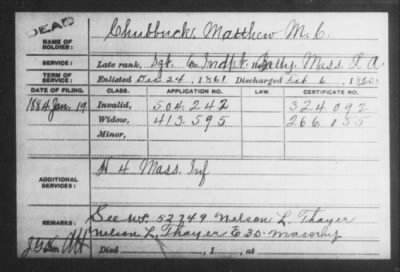 DEAD
NAME OF SOLDIER: Chubbuck, Matthew M. C.
SERVICE: Late rank, Sgt. Co. Indpt. Batty, Mass. L A
TERM OF SERVICE: Enlisted Dec 24, 1861 Discharged Oct 6, 186
DATE OF FILING. CLASS. APPLICATION NO. LAW. CERTIFICATE NO.
1884 Jan. 19 Invalid, 504.242 324.092
Widow, 413.595 266.155
Minor,
ADDITIONAL SERVICES: H 4 Mass. Inf
REMARKS: See 52749 Nelson L. Thayer
Nelson L. Thayer E 35
Died , 1 , at